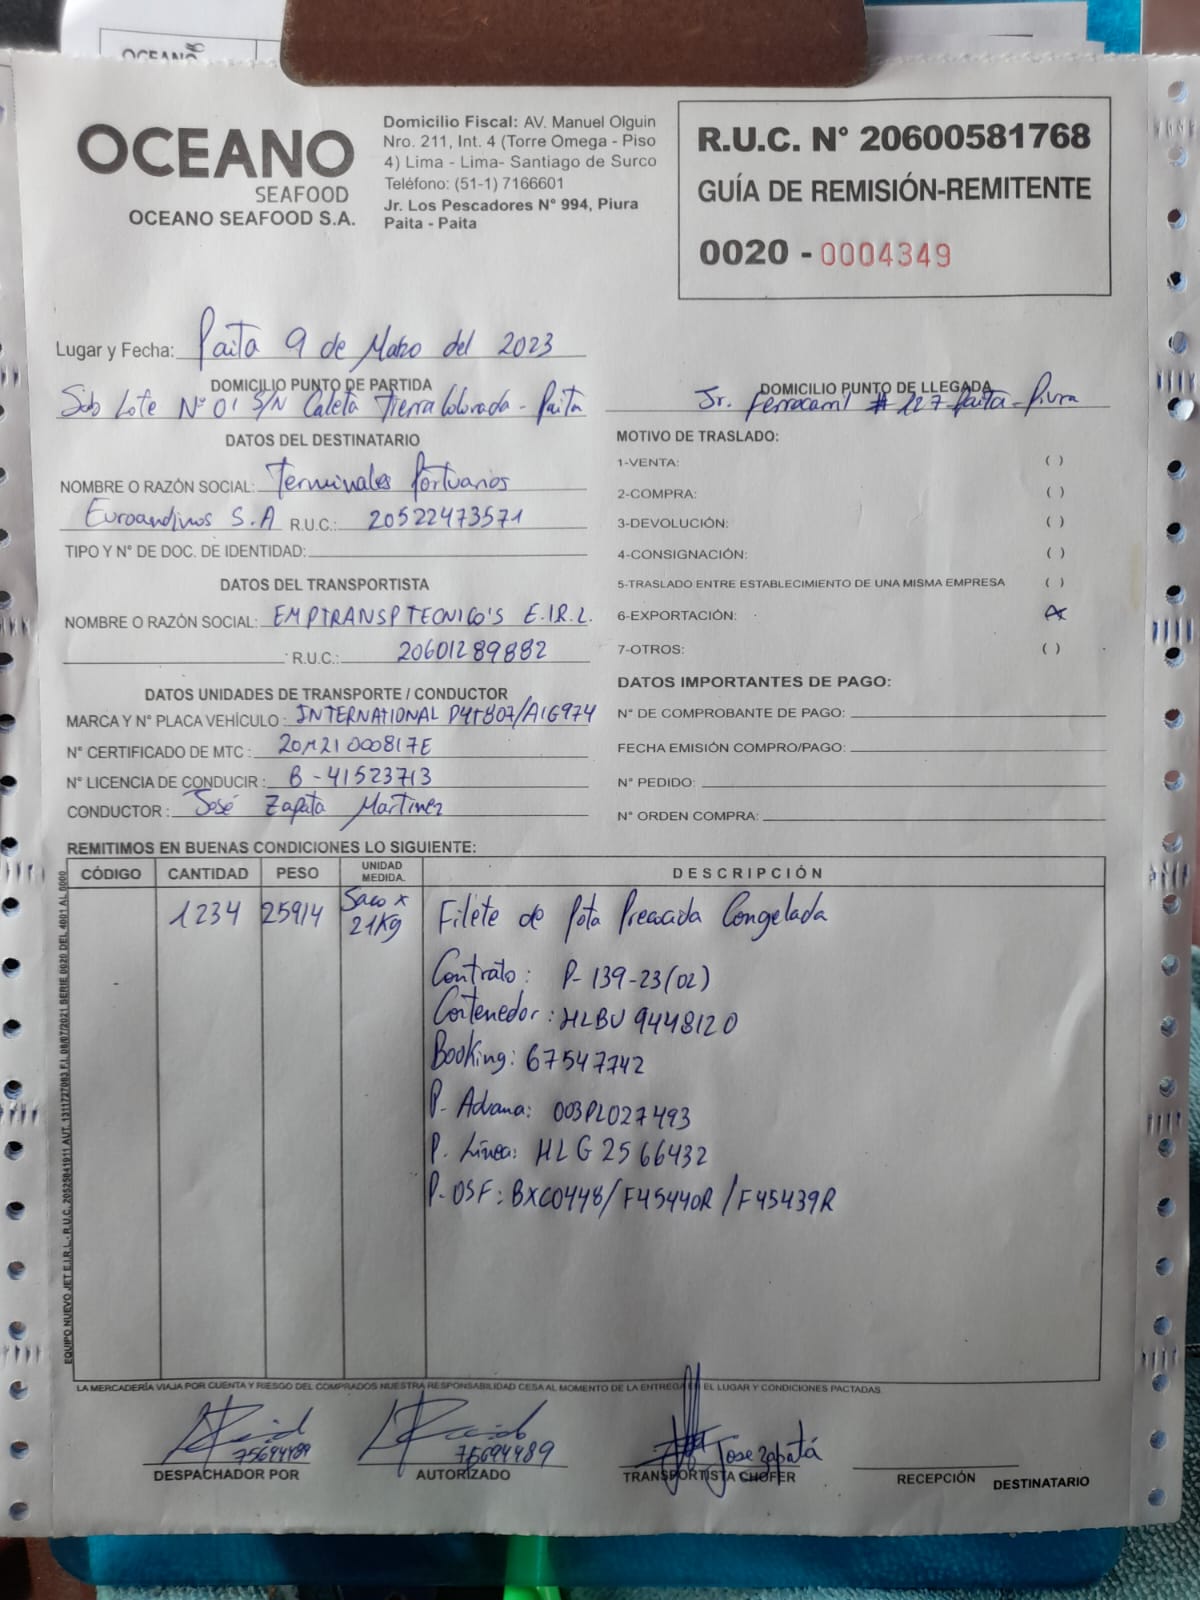 OCEANO
OCEANO
SEAFOOD
OCEANO SEAFOOD S.A.
Domicilio Fiscal: AV. Manuel Olguin
Nro. 211, Int. 4 (Torre Omega - Piso
4) Lima - Lima- Santiago de Surco
Teléfono: (51-1) 7166601
Jr. Los Pescadores N° 994, Piura
Paita - Paita
R.U.C. N° 20600581768
GUÍA DE REMISIÓN-REMITENTE
0020 - 0004349
Lugar y Fecha: Paita 9 de Marzo del 2023
DOMICILIO PUNTO DE PARTIDA
Sub Lote N° 01 S/N Caleta Tierra Colorada - Paita
DOMICILIO PUNTO DE LLEGADA
Jr. Ferrocarril # 127 Paita - Piura
DATOS DEL DESTINATARIO
NOMBRE O RAZÓN SOCIAL: Terminales Portuarios
Euroandinos S.A R.U.C.: 20522473571
TIPO Y N° DE DOC. DE IDENTIDAD:
DATOS DEL TRANSPORTISTA
NOMBRE O RAZÓN SOCIAL: EMPTRANSP TECNICO'S E.I.R.L.
R.U.C.: 20601289882
DATOS UNIDADES DE TRANSPORTE / CONDUCTOR
MARCA Y N° PLACA VEHÍCULO: INTERNATIONAL P4T807/A1G974
N° CERTIFICADO DE MTC: 20M21000817E
N° LICENCIA DE CONDUCIR: B-41523713
CONDUCTOR: José Zapata Martinez
MOTIVO DE TRASLADO:
1-VENTA: ( )
2-COMPRA: ( )
3-DEVOLUCIÓN: ( )
4-CONSIGNACIÓN: ( )
5-TRASLADO ENTRE ESTABLECIMIENTO DE UNA MISMA EMPRESA ( )
6-EXPORTACIÓN: (x)
7-OTROS: ( )
DATOS IMPORTANTES DE PAGO:
N° DE COMPROBANTE DE PAGO:
FECHA EMISIÓN COMPRO/PAGO:
N° PEDIDO:
N° ORDEN COMPRA:
REMITIMOS EN BUENAS CONDICIONES LO SIGUIENTE:
CÓDIGO CANTIDAD PESO UNIDAD MEDIDA. DESCRIPCIÓN
1234 25914 Saco x 21Kg Filete de Pota Precocida Congelada
Contrato: P-139-23(02)
Contenedor: HLBU 9448120
Booking: 67547742
P. Aduana: 003PL027493
P. Línea: HLG2566432
P. OSF: BXC0448/F45440R/F45439R
EQUIPO NUEVO JET E.I.R.L.- R.U.C. 20525841911 AUT. 1311727063 F.I. 08/07/2021 SERIE 0020 DEL 4001 AL 5000
LA MERCADERÍA VIAJA POR CUENTA Y RIESGO DEL COMPRADOS NUESTRA RESPONSABILIDAD CESA AL MOMENTO DE LA ENTREGA EN EL LUGAR Y CONDICIONES PACTADAS
75694489
75694489
Jose Zapatá
DESPACHADOR POR
AUTORIZADO
TRANSPORTISTA CHOFER
RECEPCIÓN DESTINATARIO